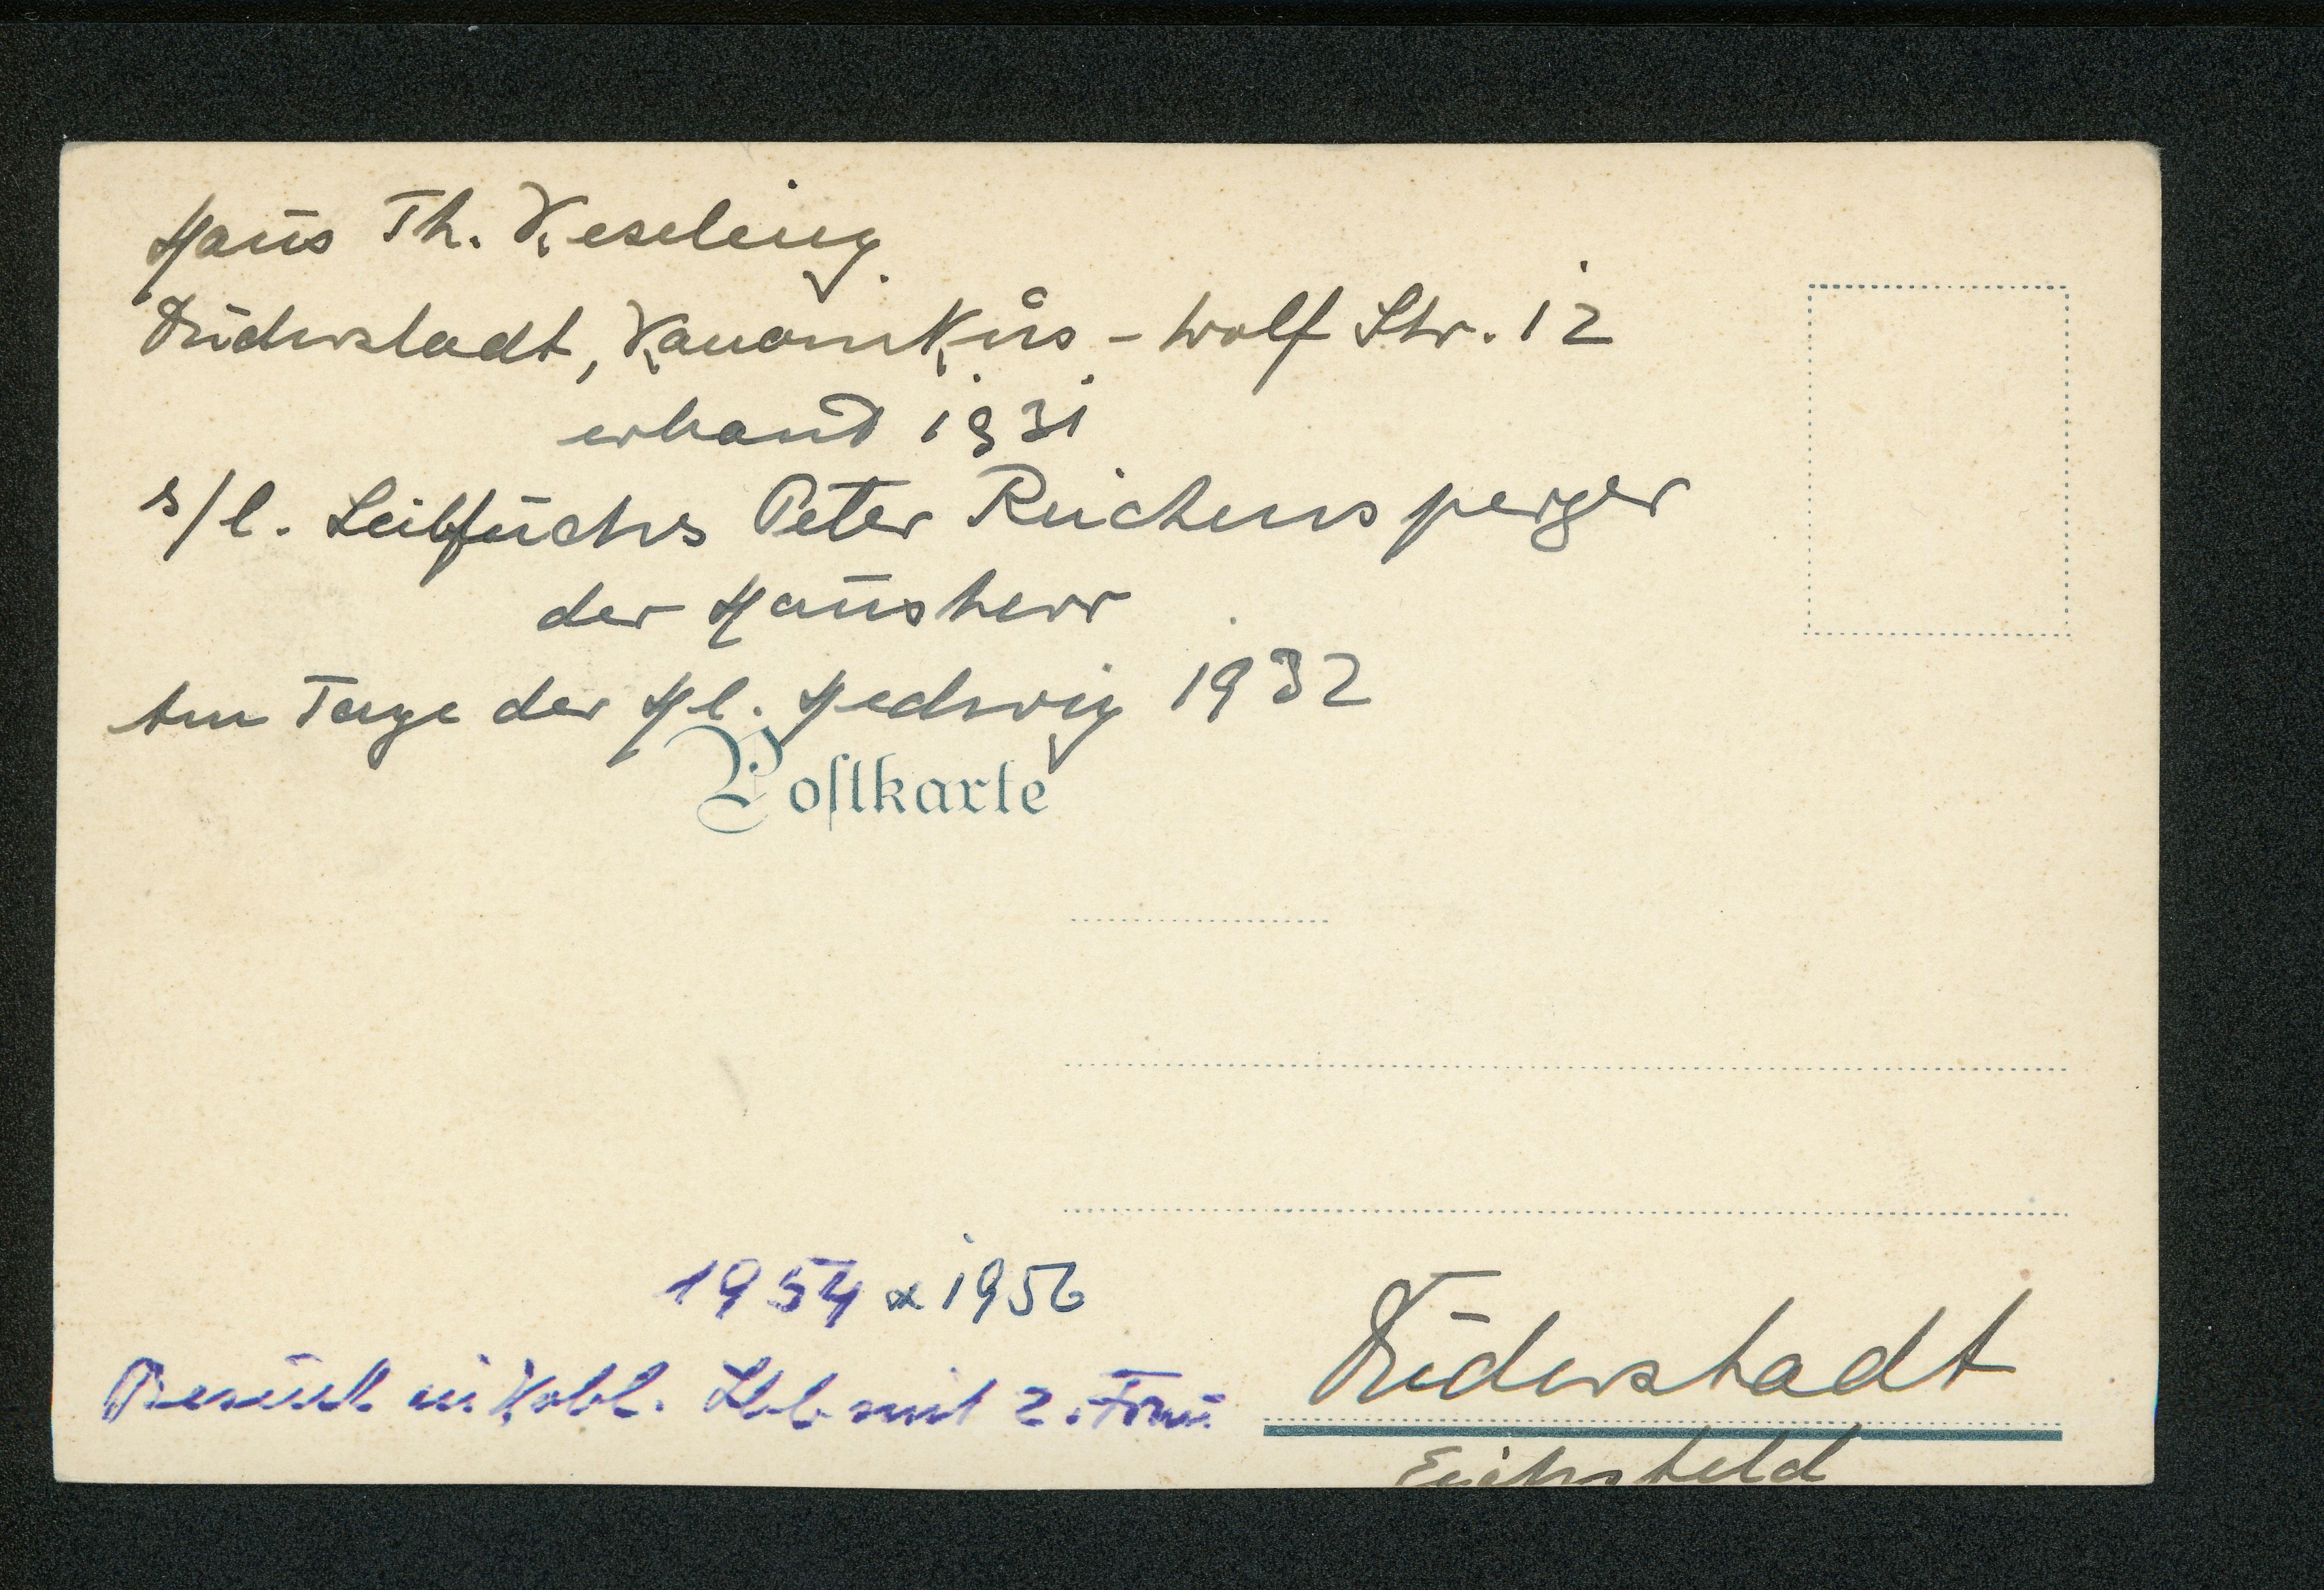 Haus Th. Keseling
Duderstadt, Kanonikus-Wolf Str. 12
erbaut 1931
s/l. Leibfuchs Peter Reichensperger
der Hausherr
Am Tage der Hl. Hedwig 1932
Postkarte
1954 & 1956
Besuch in Kobl. mit 2. Frau
Duderstadt
Eichsfeld